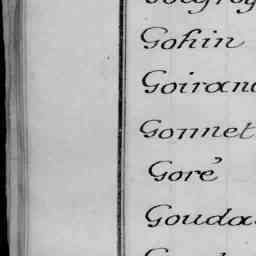 Gohin
Goiran
Gonnet
Goré
Gouda